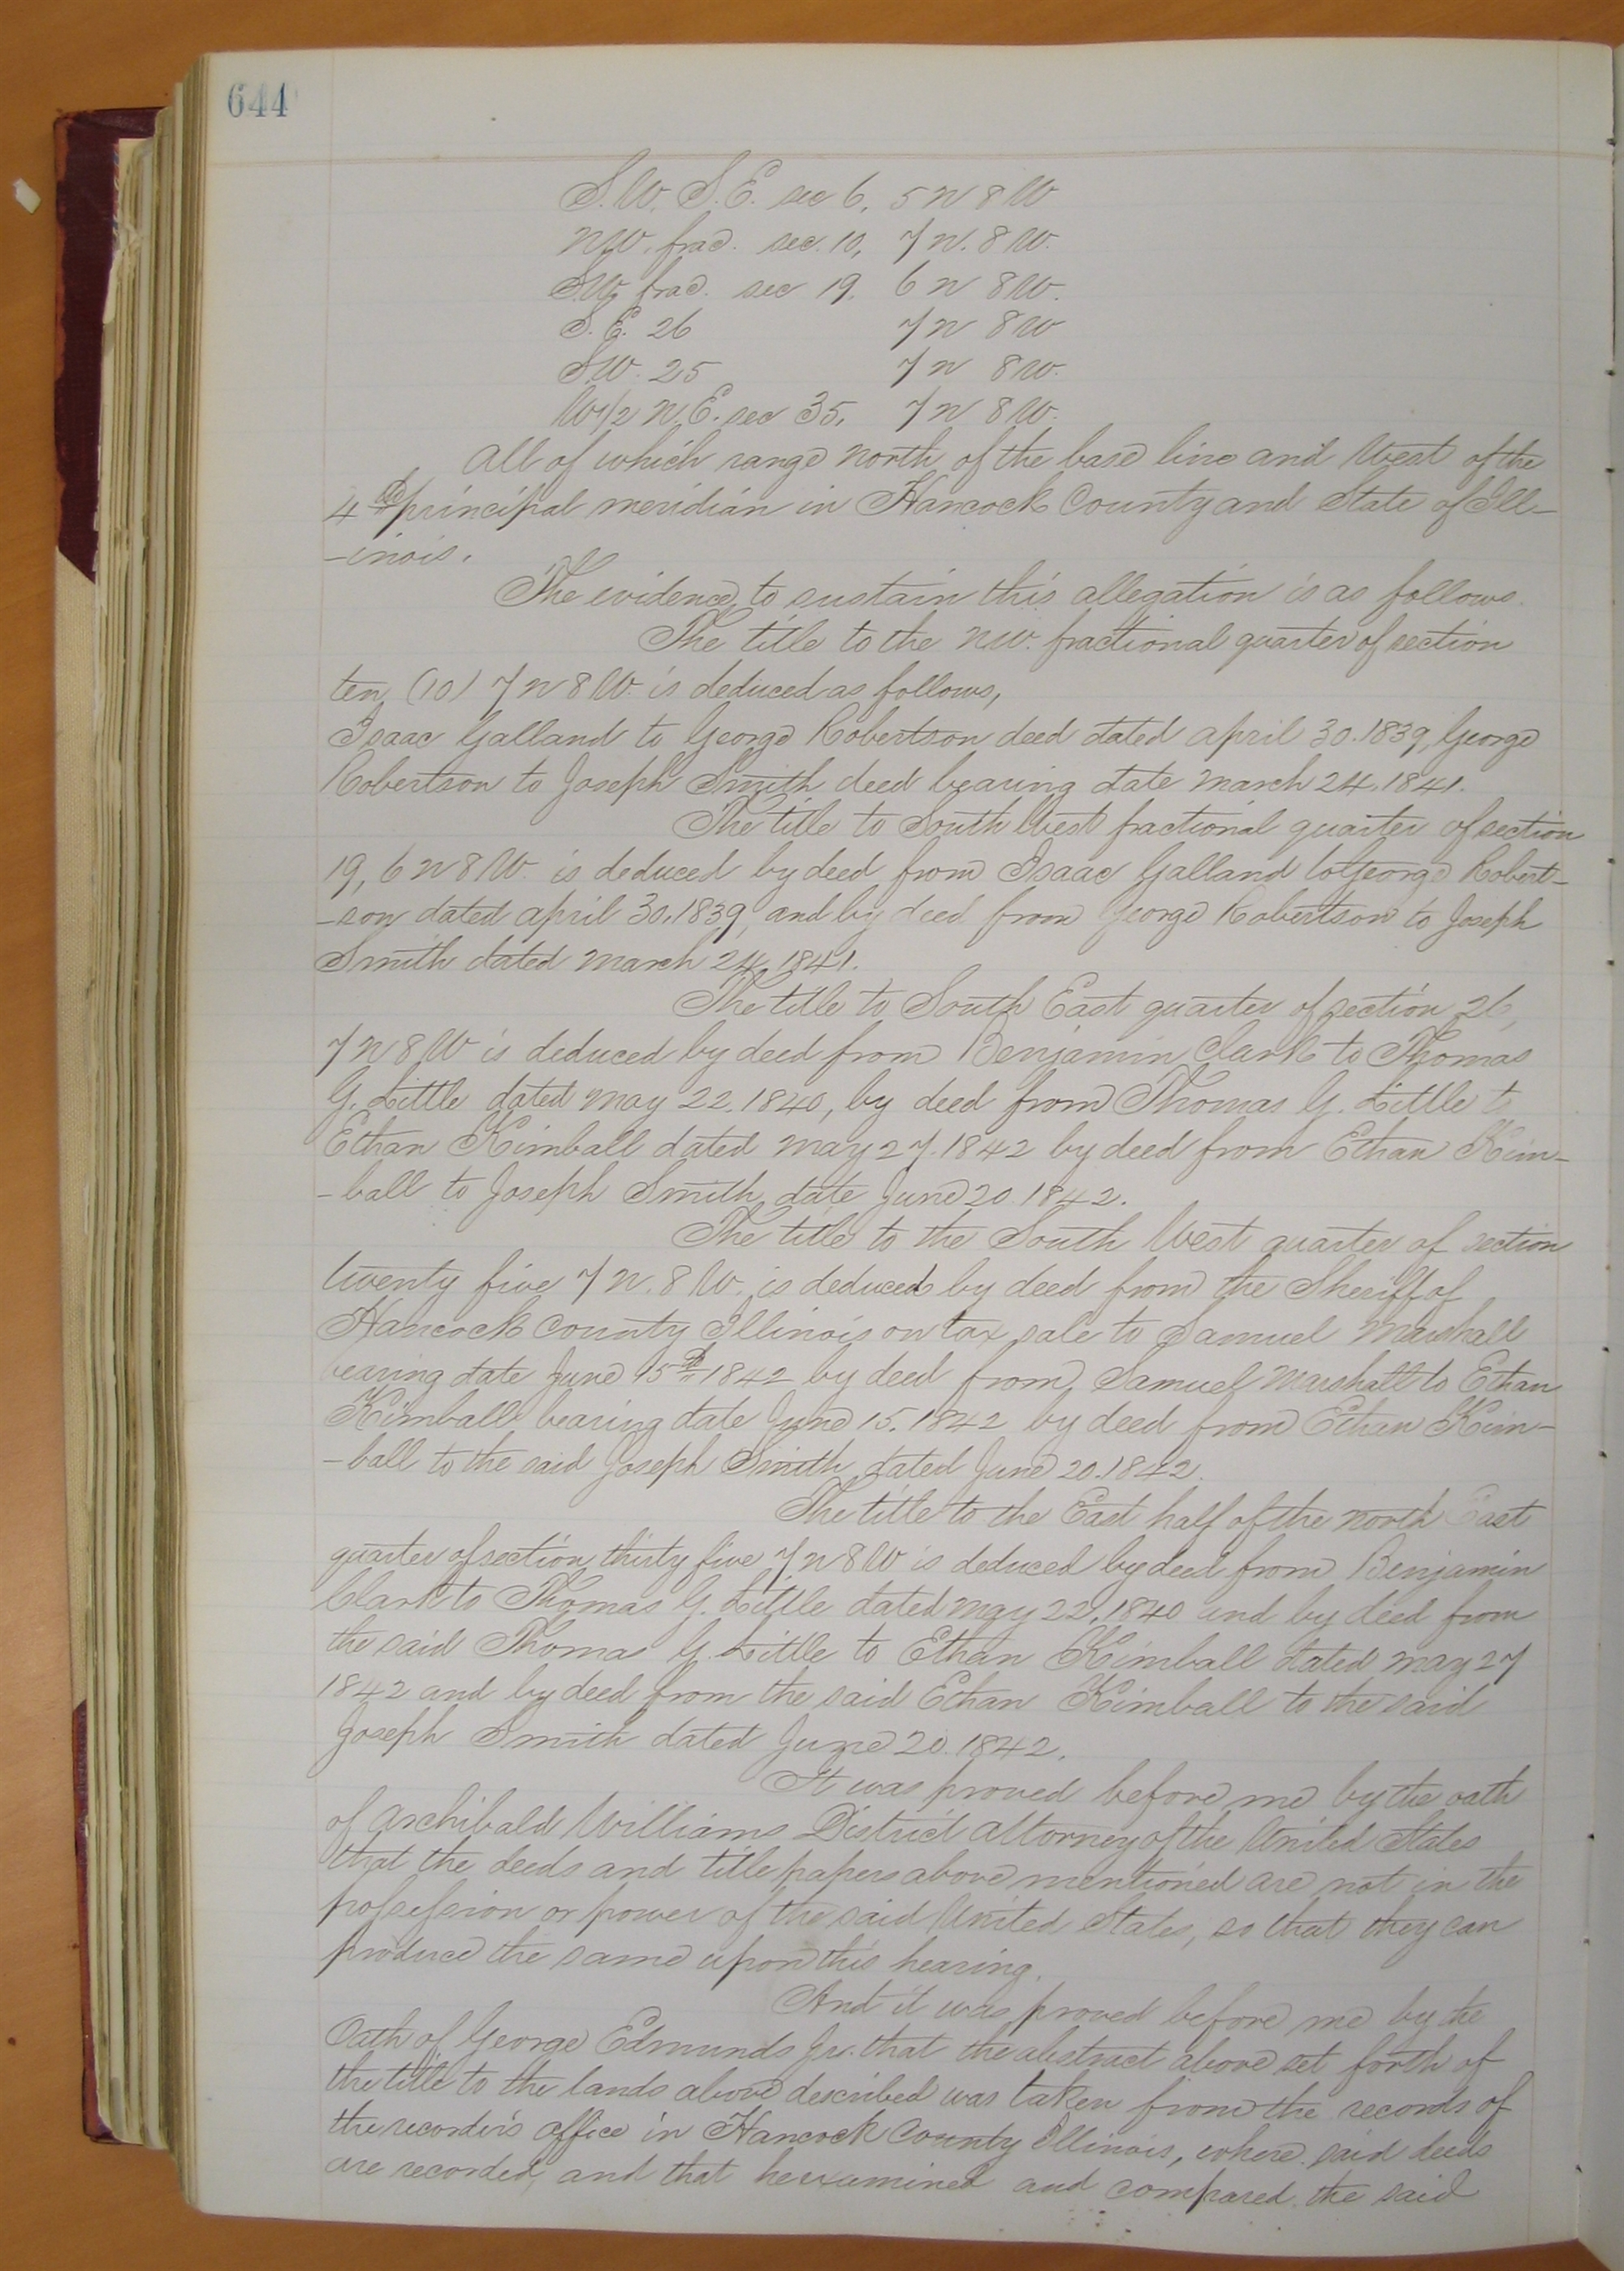 644
S.W. S.E. sec 6, 5 N 8 W
N.W. frac. sec. 10, 7 N. 8 W.
S.W. frac. sec 19. 6 N 8 W.
S. E. 26 7 N 8 W
S.W. 25 7 N 8 W.
W 1/2 N.E. sec 35, 7 N 8 W.
All of which range north of the base line and West of the
4th principal meridian in Hancock County and State of Ill-
-inois.
The evidence to sustain this allegation is as follows.
The title to the N.W. fractional quarter of section
ten (10) 7 N 8 W. is deduced as follows,
Isaac Galland to George Robertson deed dated April 30. 1839, George
Robertson to Joseph Smith deed bearing date March 24. 1841.
The title to South West fractional quarter of section
19, 6 N 8 W. is deduced by deed from Isaac Galland to George Robert-
-son dated April 30. 1839, and by deed from George Robertson to Joseph
Smith dated March 24, 1841.
The title to South East quarter of section 26,
7 N 8 W is deduced by deed from Benjamin Clark to Thomas
G. Little dated May 22. 1840, by deed from Thomas G. Little to
Ethan Kimball dated May 27. 1842 by deed from Ethan Kim-
-ball to Joseph Smith date June 20. 1842.
The title to the South West quarter of section
twenty five 7 N. 8 W. is deduced by deed from the Sheriff of
Hancock County Illinois on tax sale to Samuel Marshall
bearing date June 15th 1842 by deed from Samuel Marshall to Ethan
Kimball bearing date June 15. 1842 by deed from Ethan Kim-
-ball to the said Joseph Smith dated June 20. 1842.
The title to the East half of the North East
quarter of section thirty five 7 N 8 W is deduced by deed from Benjamin
Clark to Thomas G. Little dated May 22, 1840 and by deed from
the said Thomas G. Little to Ethan Kimball dated May 27
1842 and by deed from the said Ethan Kimball to the said
Joseph Smith dated June 20. 1842.
It was proved before me by the oath
of Archibald Williams District Attorney of the United States
that the deeds and title papers above mentioned are not in the
possession or power of the said United States, so that they can
produce the same upon this hearing.
And it was proved before me by the
Oath of George Edmunds Jr. that the abstract above set forth of
the title to the lands above described was taken from the records of
the recorder's office in Hancock County Illinois, where said deeds
are recorded, and that he examined and compared the said